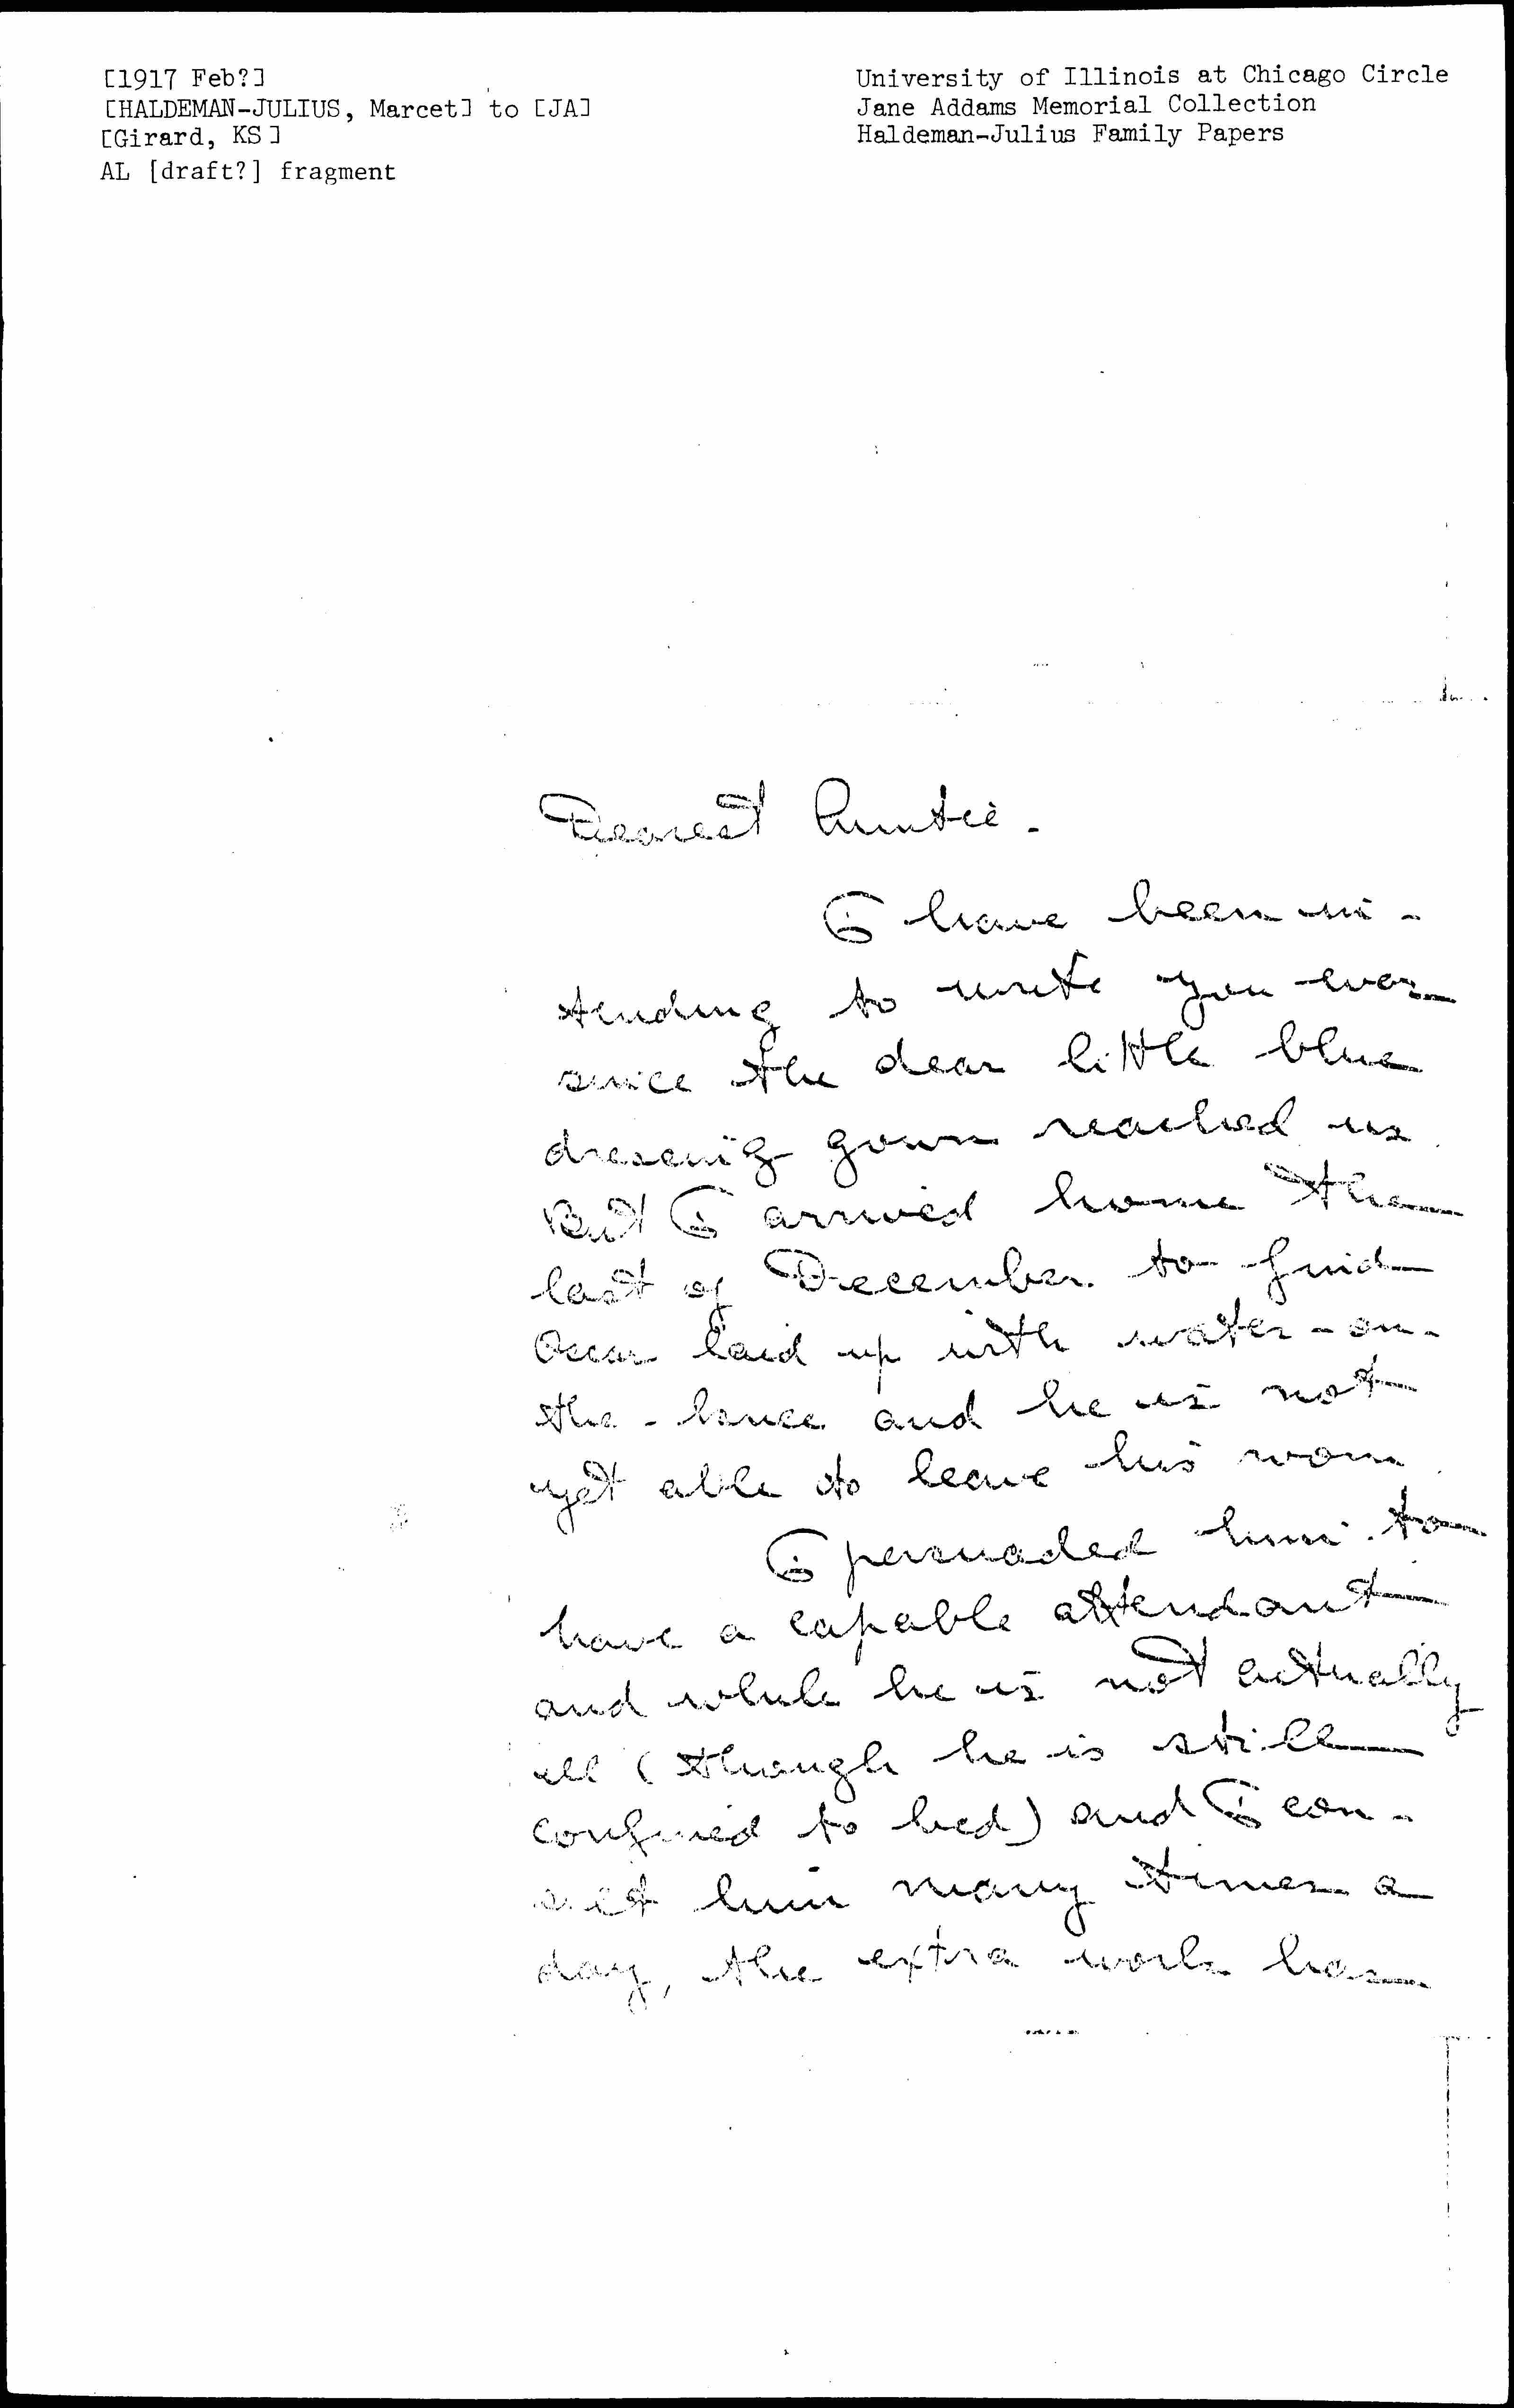 [1917 Feb?]
[HALDEMAN-JULIUS, Marcet] to [JA]
[Girard, KS]
AL [draft?] fragment
University of Illinois at Chicago Circle
Jane Addams Memorial Collection
Haldeman-Julius Family Papers
Dearest Auntie.
I have been in-
tending to write you ever
since the dear little blue
dressing gown reached us.
But I arrived home the
last of December to find
Oscar laid up with water-on-
the-knee and he is not
yet able to leave his room.
I persuaded him to
have a capable attendant
and while he is not actually
ill (though he is still
confined to bed) and I con-
sult him many times a
day, the extra work has